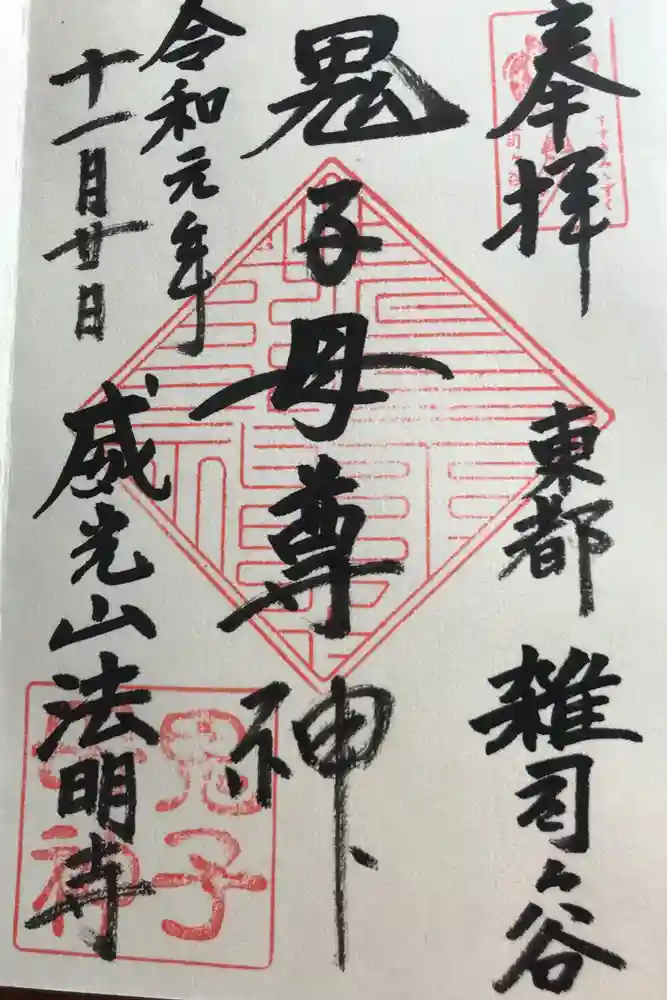 奉拝
東都 雑司ヶ谷
鬼子母尊神
令和元年
十一月廿日
威光山法明寺
鬼子
母神